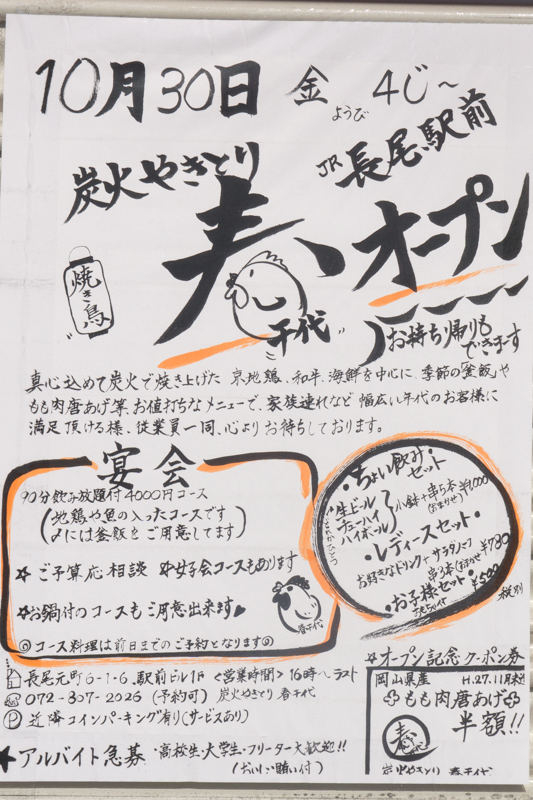 10月30日 金ようび 4じ〜
JR長尾駅前
炭火やきとり
春 オープン
千代
焼き鳥
お持ち帰りも
できます
真心込めて炭火で焼き上げた 京地鶏、和牛、海鮮を中心に、季節の「釜飯」や
もも肉唐あげ等、お値打ちなメニューで、家族連れなど幅広い年代のお客様に
満足頂ける様、従業員一同、心よりお待ちしております。
宴会
90分飲み放題付4000円コース
(地鶏や魚の入ったコースです
〆には釜飯をご用意してます)
☆ご予算応相談 ☆女子会コースもあります
☆お鍋付のコースもご用意出来ます
春千代
◎コース料理は前日までのご予約となります◎
・ちょい飲み
セット・
生ビール
チューハイ
ハイボール
小鉢+串5本 ¥1,000
(おまかせ)
・レディースセット・
お好きなドリンク+サラダハーフ
串3本(おまかせ) ¥780
・お子様セット ¥500
税別
長尾元町6-1-6 駅前ビル1F <営業時間>16時〜ラスト
072-807-2026 (予約可) 炭火やきとり 春千代
Ⓟ近隣コインパーキング有り(サービスあり)
★アルバイト急募 ・高校生・大学生・フリーター大歓迎!!
(おいしい賄い付)
☆オープン記念クーポン券
岡山県産 H.27.11月末迄
もも肉唐あげ
半額!!
春千代
炭火やきとり 春千代